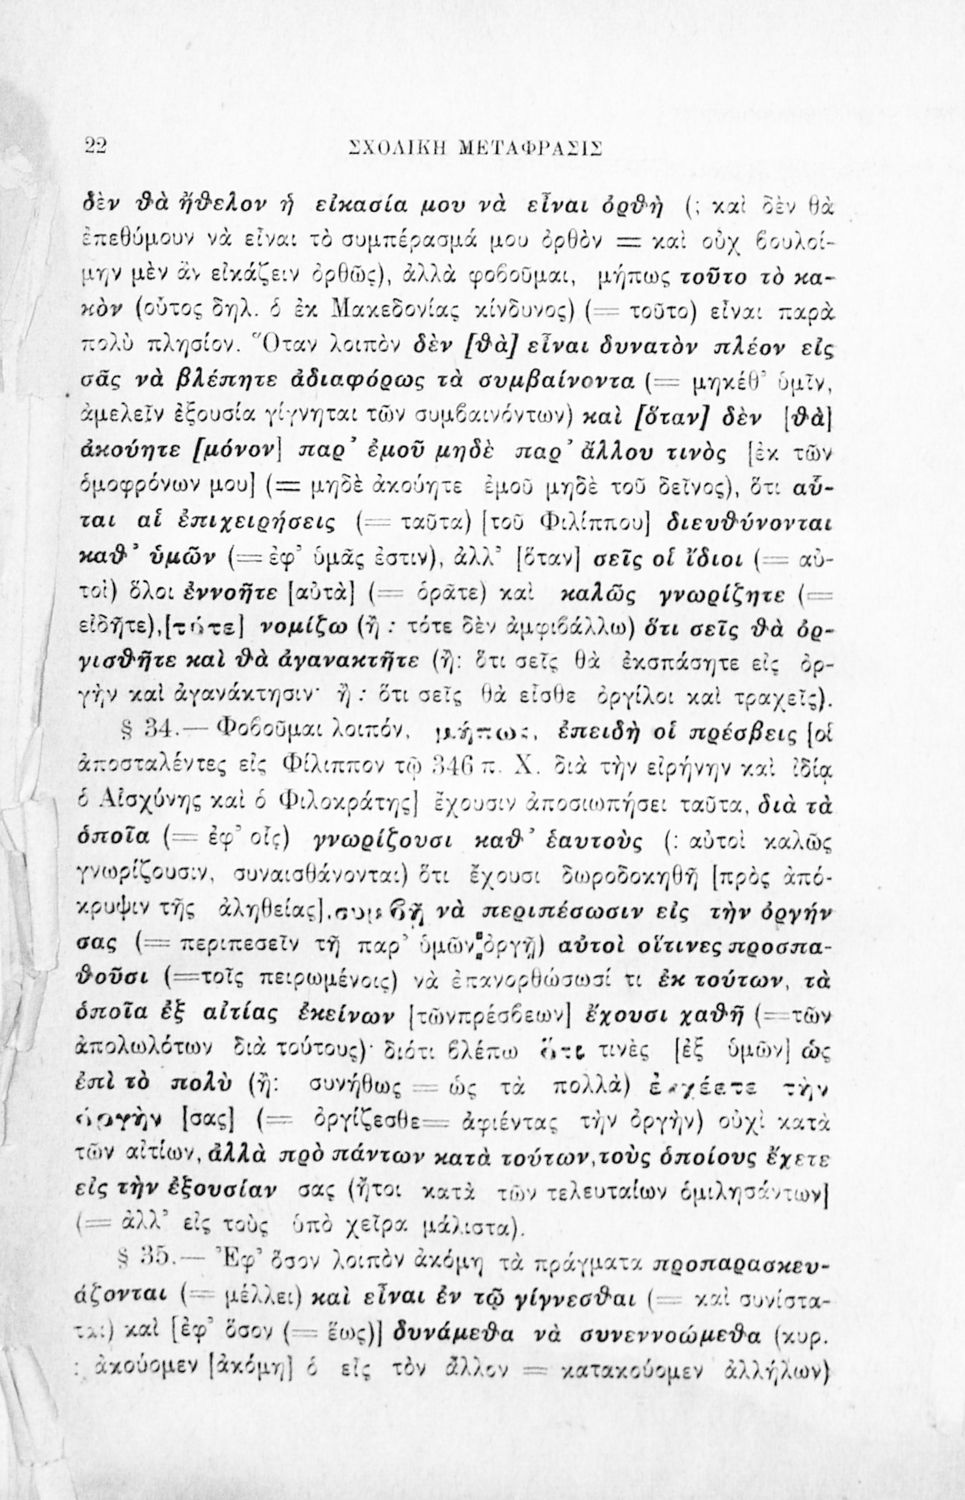 22 ΣΧΟΛΙΚΗ ΜΕΤΑΦΡΑΣΙΣ
δὲν θὰ ἤθελον ἡ εἰκασία μου νὰ εἶναι ὀρθὴ (; καὶ δὲν θὰ
ἐπεθύμουν νὰ εἶναι τὸ συμπέρασμά μου ὀρθὸν = καὶ οὐχ βουλοί-
μην μὲν ἂν εἰκάζειν ὀρθῶς), ἀλλὰ φοβοῦμαι, μήπως τοῦτο τὸ κα-
κὸν (οὗτος δηλ. ὁ ἐκ Μακεδονίας κίνδυνος) (= τοῦτο) εἶναι παρὰ
πολὺ πλησίον. Ὅταν λοιπὸν δὲν [θὰ] εἶναι δυνατὸν πλέον εἰς
σᾶς νὰ βλέπητε ἀδιαφόρως τὰ συμβαίνοντα (= μηκέθ' ὑμῖν,
ἀμελεῖν ἐξουσία γίγνηται τῶν συμβαινόντων) καὶ [ὅταν] δὲν [θὰ]
ἀκούητε [μόνον] παρ' ἐμοῦ μηδὲ παρ' ἄλλου τινὸς [ἐκ τῶν
ὁμοφρόνων μου] (= μηδὲ ἀκούητε ἐμοῦ μηδὲ τοῦ δεῖνος), ὅτι αὗ-
ται αἱ ἐπιχειρήσεις (= ταῦτα) [τοῦ Φιλίππου] διευθύνονται
καθ' ὑμῶν (= ἐφ' ὑμᾶς ἐστιν), ἀλλ' [ὅταν] σεῖς οἱ ἴδιοι (= αὐ-
τοὶ) ὅλοι ἐννοῆτε [αὐτὰ] (= ὁρᾶτε) καὶ καλῶς γνωρίζητε (=
εἰδῆτε),[τότε] νομίζω (ἢ : τότε δὲν ἀμφιβάλλω) ὅτι σεῖς θὰ ὀρ-
γισθῆτε καὶ θὰ ἀγανακτῆτε (ἢ: ὅτι σεῖς θὰ ἐκσπάσητε εἰς ὀρ-
γὴν καὶ ἀγανάκτησιν· ἢ : ὅτι σεῖς θὰ εἶσθε ὀργίλοι καὶ τραχεῖς).
§ 34.— Φοβοῦμαι λοιπόν, μήπως, ἐπειδὴ οἱ πρέσβεις [οἱ
ἀποσταλέντες εἰς Φίλιππον τῷ 346 π. Χ. διὰ τὴν εἰρήνην καὶ ἰδίᾳ
ὁ Αἰσχύνης καὶ ὁ Φιλοκράτης] ἔχουσιν ἀποσιωπήσει ταῦτα, διὰ τὰ
ὁποῖα (= ἐφ' οἷς) γνωρίζουσι καθ' ἑαυτοὺς (: αὐτοὶ καλῶς
γνωρίζουσιν, συναισθάνονται) ὅτι ἔχουσι δωροδοκηθῆ [πρὸς ἀπό-
κρυψιν τῆς ἀληθείας], συμβῇ νὰ περιπέσωσιν εἰς τὴν ὀργήν
σας (= περιπεσεῖν τῇ παρ' ὑμῶν ὀργῇ) αὐτοὶ οἵτινες προσπα-
θοῦσι (=τοῖς πειρωμένοις) νὰ ἐπανορθώσωσί τι ἐκ τούτων, τὰ
ὁποῖα ἐξ αἰτίας ἐκείνων [τῶνπρέσβεων] ἔχουσι χαθῆ (=τῶν
ἀπολωλότων διὰ τούτους)· διότι βλέπω ὅτι τινὲς [ἐξ ὑμῶν] ὡς
ἐπὶ τὸ πολὺ (ἢ: συνήθως = ὡς τὰ πολλὰ) ἐκχέετε τὴν
ὀργὴν [σας] (= ὀργίζεσθε= ἀφιέντας τὴν ὀργὴν) οὐχὶ κατὰ
τῶν αἰτίων, ἀλλὰ πρὸ πάντων κατὰ τούτων,τοὺς ὁποίους ἔχετε
εἰς τὴν ἐξουσίαν σας (ἤτοι κατὰ τῶν τελευταίων ὁμιλησάντων]
(= ἀλλ' εἰς τοὺς ὑπὸ χεῖρα μάλιστα).
§ 35.— Ἐφ' ὅσον λοιπὸν ἀκόμη τὰ πράγματα προπαρασκευ-
άζονται (= μέλλει) καὶ εἶναι ἐν τῷ γίγνεσθαι (= καὶ συνίστα-
ται) καὶ [ἐφ' ὅσον (= ἕως)] δυνάμεθα νὰ συνεννοώμεθα (κυρ.
: ἀκούομεν [ἀκόμη] ὁ εἰς τὸν ἄλλον = κατακούομεν ἀλλήλων)